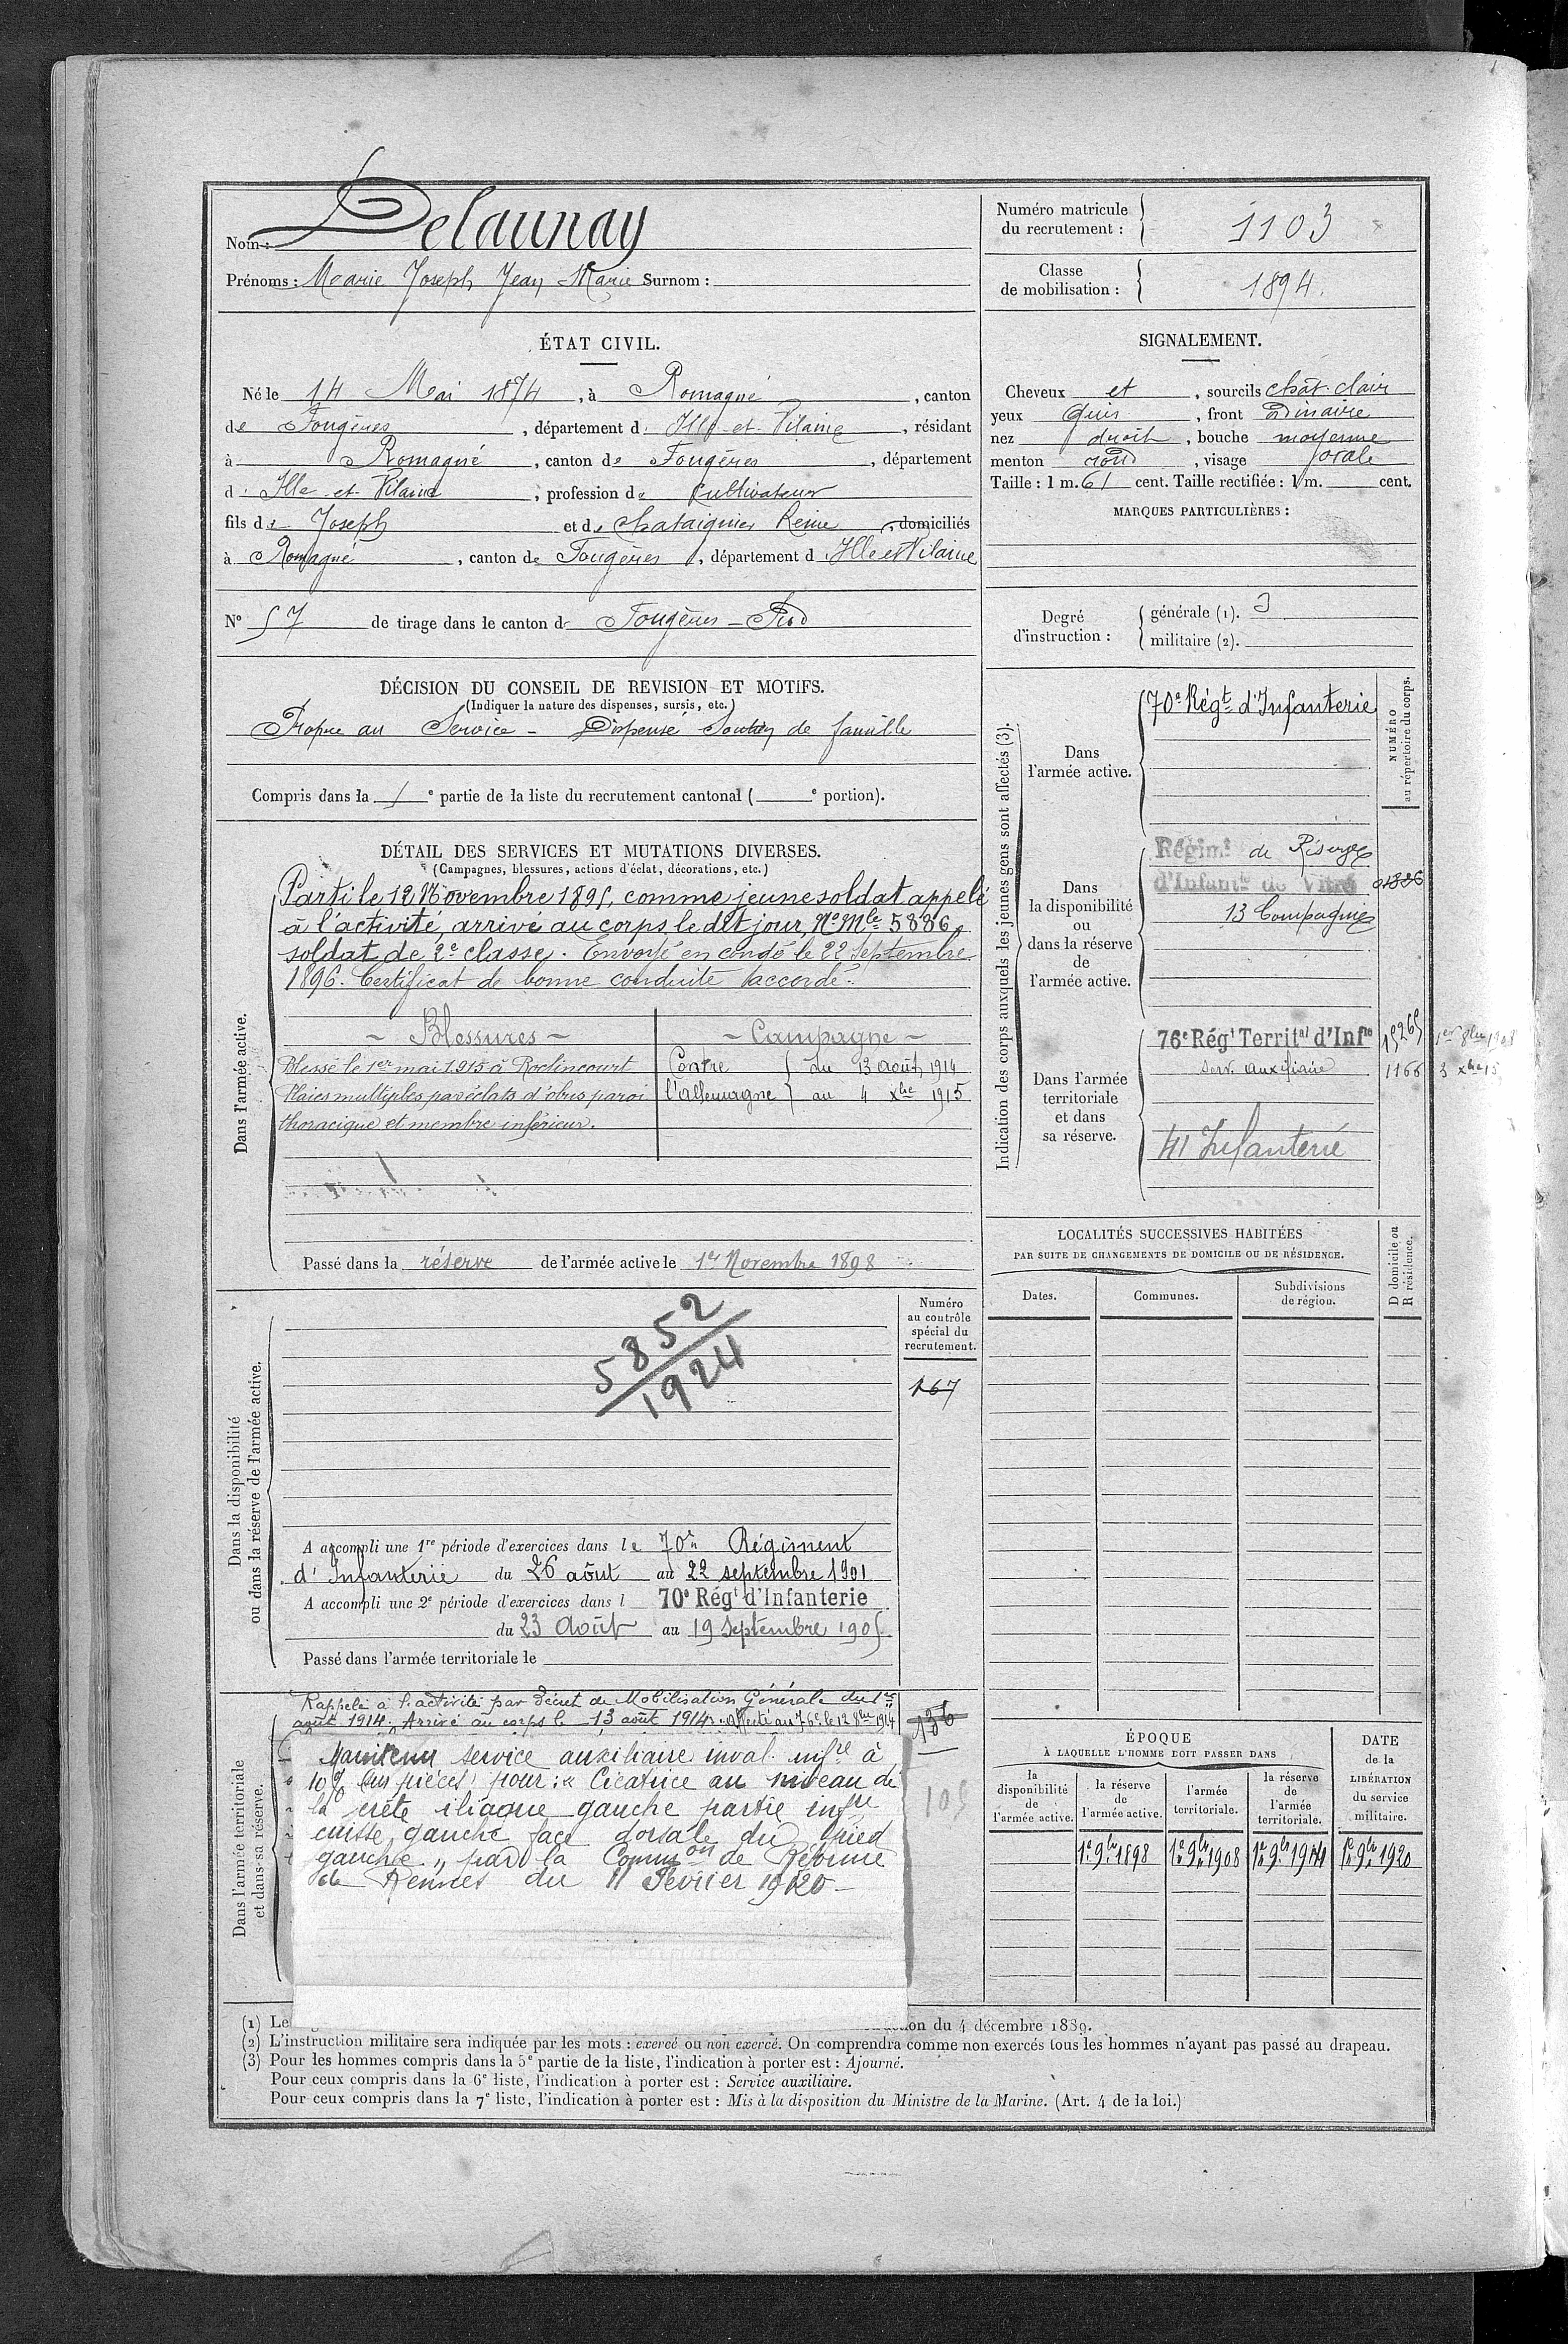 Nom : Delaunay
Prénoms : Marie Joseph Jean Marie Surnom :
Numéro matricule du recrutement : 1103
Classe de mobilisation : 1894.
ÉTAT CIVIL.
Né le 14 Mai 1874, à Romagné, canton
de Fougères, département d' Ille-et-Vilaine, résidant
à Romagné, canton de Fougères, département
d' Ille-et-Vilaine, profession de Cultivateur
fils de Joseph et de Chataignier Reine, domiciliés
à Romagné, canton de Fougères, département d Ille et Vilaine
N° 57 de tirage dans le canton de Fougères-Sud
SIGNALEMENT.
Cheveux et, sourcils chât. clair
yeux gris, front ordinaire
nez droit, bouche moyenne
menton rond, visage ovale
Taille : 1 m. 61 cent. Taille rectifiée : 1 m. cent.
MARQUES PARTICULIÈRES :
Degré d'instruction :
générale (1). 3
militaire (2).
DÉCISION DU CONSEIL DE REVISION ET MOTIFS.
(Indiquer la nature des dispenses, sursis, etc.)
Propre au Service - Dispensé Soutien de famille
Compris dans la 1 e partie de la liste du recrutement cantonal ( e portion).
DÉTAIL DES SERVICES ET MUTATIONS DIVERSES.
(Campagnes, blessures, actions d'éclat, décorations, etc.)
Dans l'armée active.
Parti le 12 Novembre 1895, comme jeune soldat appelé
à l'activité, arrivé au corps le dit jour, N° Mle 5886,
soldat de 2e classe. Envoyé en congé le 22 Septembre
1896. Certificat de bonne conduite accordé.
- Blessures -
Blessé le 1er mai 1915 à Roclincourt
Plaies multiples par éclats d'obus paroi
thoracique et membre inférieur.
- Campagne -
Contre l'Allemagne
du 13 août 1914
au 4 xbre 1915
Passé dans la réserve de l'armée active le 1er Novembre 1898
Indication des corps auxquels les jeunes gens sont affectés (3).
NUMÉRO au répertoire du corps.
Dans l'armée active.
70e Régt d'Infanterie
Dans la disponibilité ou dans la réserve de l'armée active.
Régimt de Réserve
d'Infantie de Vitré
13 Compagnie
Dans l'armée territoriale et dans sa réserve.
76e Régt Territal d'Infie 15265
Serv. auxiliaire 1166 3 xbre 15
41 Infanterie
LOCALITÉS SUCCESSIVES HABITÉES
PAR SUITE DE CHANGEMENTS DE DOMICILE OU DE RÉSIDENCE.
Dates.
Communes.
Subdivisions de région.
D domicile ou R résidence.
Dans la disponibilité ou dans la réserve de l'armée active.
5852
1924
Numéro au contrôle spécial du recrutement.
167
A accompli une 1re période d'exercices dans le 70e Régiment
d'Infanterie du 26 août au 22 septembre 1901
A accompli une 2e période d'exercices dans l 70e Régt d'Infanterie
du 23 Août au 19 Septembre 1905
Passé dans l'armée territoriale le
Dans l'armée territoriale et dans sa réserve.
Rappelé à l'activité par Décret de Mobilisation Générale du 1er
août 1914. Arrivé au corps le 13 août 1914. Affecté au 76e le 12 8bre 1914
136
105
Maintenu service auxiliaire inval. infre à
10% sur pièces pour : « Cicatrice au niveau de
la crête iliaque gauche partie infre
cuisse gauche face dorsale du pied
gauche » par la Common de Réforme
de Rennes du 11 Février 1920
ÉPOQUE
À LAQUELLE L'HOMME DOIT PASSER DANS
la disponibilité de l'armée active.
la réserve de l'armée active.
l'armée territoriale.
la réserve de l'armée territoriale.
DATE de la LIBÉRATION du service militaire.
1er 9bre 1898
1er 9bre 1908
1er 9bre 1914
1er 9bre 1920
(1) Le
on du 4 décembre 1889.
(2) L'instruction militaire sera indiquée par les mots : exercé ou non exercé. On comprendra comme non exercés tous les hommes n'ayant pas passé au drapeau.
(3) Pour les hommes compris dans la 5e partie de la liste, l'indication à porter est : Ajourné.
Pour ceux compris dans la 6e liste, l'indication à porter est : Service auxiliaire.
Pour ceux compris dans la 7e liste, l'indication à porter est : Mis à la disposition du Ministre de la Marine. (Art. 4 de la loi.)